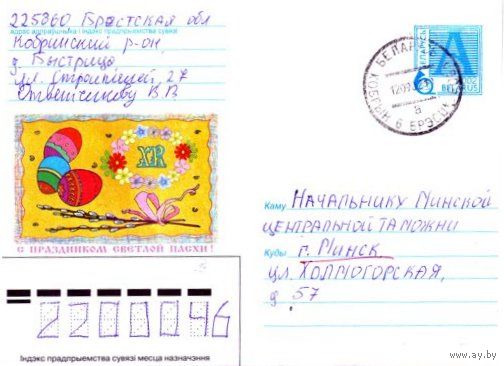 225860 Брестская обл
адрас адпраўшчыка і індэкс прадпрыемства сувязі
Кобринский р-он
д Быстрица
ул. 27
Ответчикову В.В.
БЕЛАРУСЬ
А
BELARUS
БЕЛАРУСЬ
КОБРЫН 6 БРЭСЦК
а
ХВ
С ПРАЗДНИКОМ СВЕТЛОЙ ПАСХИ!
Каму НАЧАЛЬНИКУ МИНСКОЙ
ЦЕНТРАЛЬНОЙ ТАМОЖНИ
Куды г. МИНСК
ул. ХОЛМОГОРСКАЯ,
д 57
220046
Індэкс прадпрыемства сувязі месца назначэння
www.ay.by